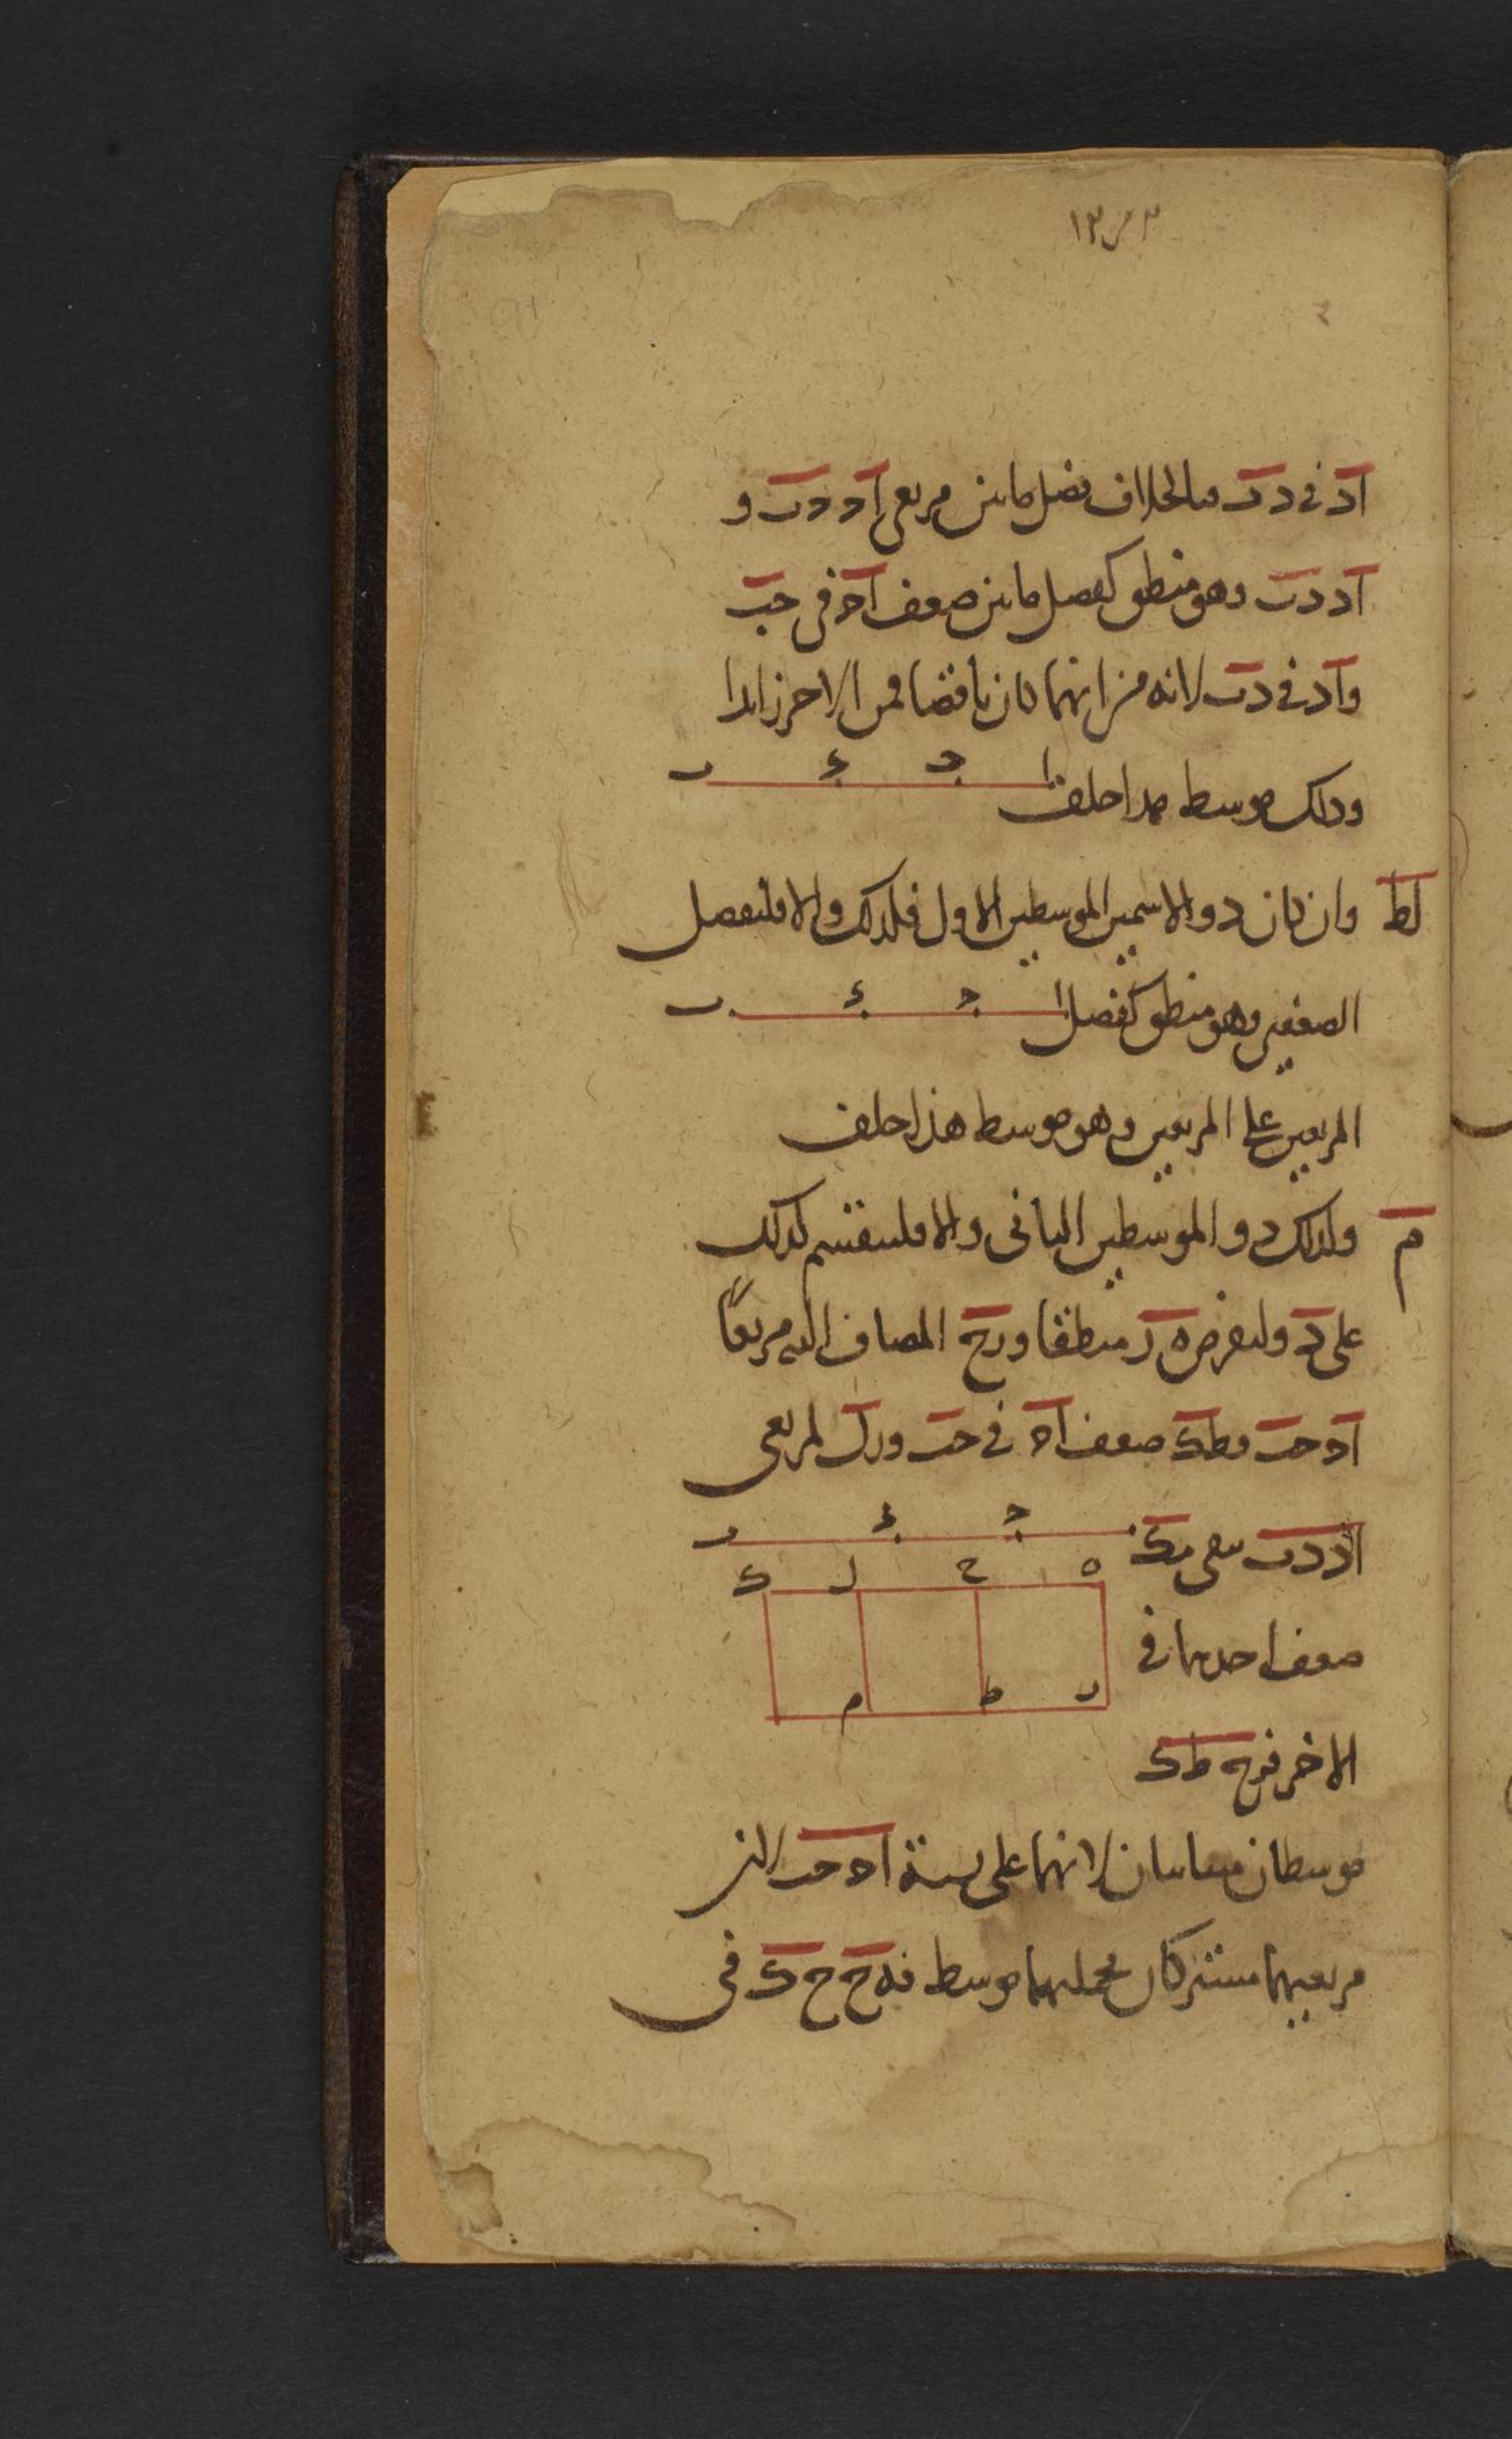 اد في دب فبالخلاف فضل ما بين مربعي اد دب و
اد دب وهو منطق كفضل ما بين ضعف اح في حب
واد في دب لانه من ايهما كان ناقصا فمن الاخر زايدا
ا ج د ب
وذلك موسط هذا خلف
لط وان كان ذو الاسمين الموسطين الاول فكذلك والا فليفصل
الضعفين وهو منطق كفضل
ا ج د ب
المربعين على المربعين وهو موسط هذا خلف
م وكذلك ذو الموسطين الثاني والا فلينقسم كذلك
على د وليفرض ه ر منطقا ورح المضاف اليه مربعا
اح حب وطك ضعف اح في حب ورل لمربعي
اد دب بقي مك
ج د ب
ه ح ل ك
ضعف احدهما في
ر ط م
الاخر فرح طك
موسطان متباينان لانهما على نسبة اح حب الذي
مربعيهما مشتركان فمجمليهما موسط فه ح ح ك في